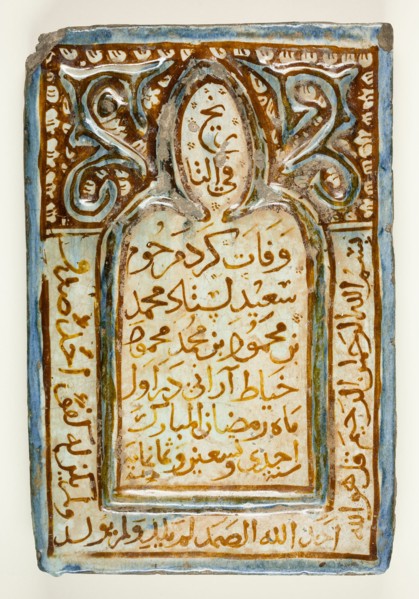 ريخ
في التا
وفات کرد مرحوم
سعید محمد
بن محمود بن محمد محمود
خیاط آرانی در اول
ماه رمضان المبارك
سنة احدى وتسعين وثمانمایة
بسم الله الرحمن الرحيم قل هو الله
احد الله الصمد لم يلد ولم يولد
ولم يكن له كفوا احد صدق